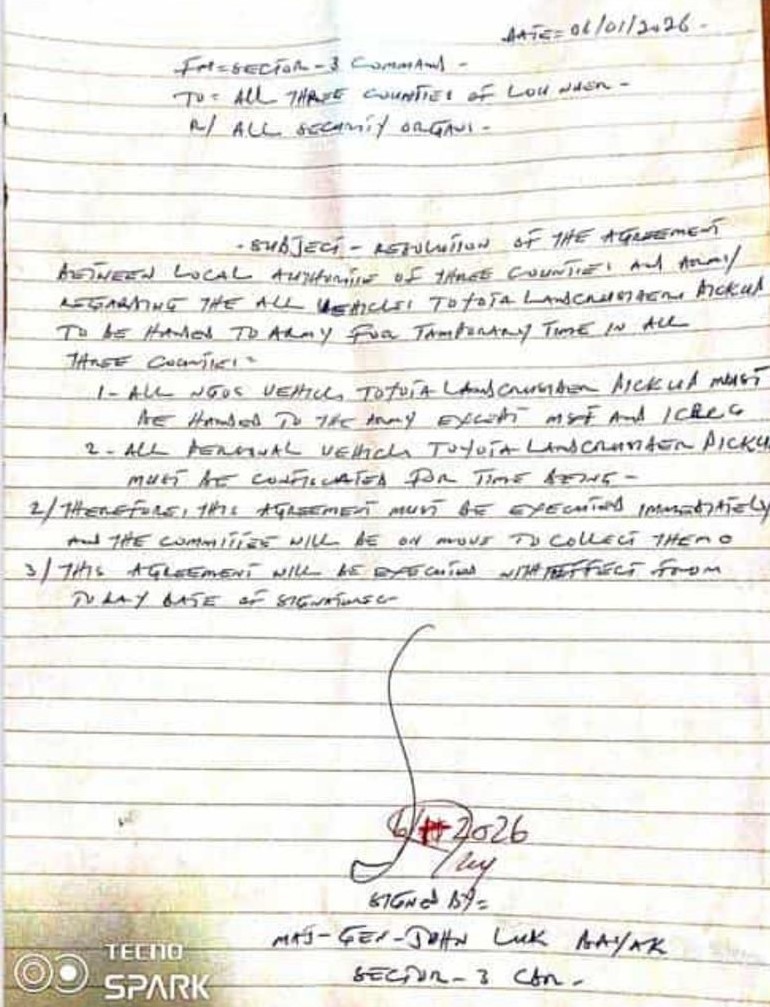 DATE= 06/01/2026-
FM= SECTOR-3 COMMAND-
TO= ALL THREE COUNTIES OF LOU NUER-
R/ ALL SECURITY ORGANS-
-SUBJECT- RESOLUTION OF THE AGREEMENT
BETWEEN LOCAL AUTHORITIE OF THREE COUNTIES AND ARMY
REGARDING THE ALL VEHICLES TOYOTA LANDCRUISER PICKUP
TO BE HANDED TO ARMY FOR TAMPORARY TIME IN ALL
THREE COUNTIES=
1- ALL NGOS VEHICLS TOYOTA LANDCRUISER PICKUP MUST
BE HANDED TO THE ARMY EXCEPT MSF AND ICRC
2- ALL PERSONAL VEHICLS TOYOTA LANDCRUISER PICKUP
MUST BE CONFISCATED FOR TIME BEING-
2/ THEREFORE, THIS AGREEMENT MUST BE EXECUTED IMMEDIATELY
AND THE COMMITTEE WILL BE ON MOVE TO COLLECT THEM
3/ THIS AGREEMENT WILL BE EXECUTED WITH EFFECT FROM
TODAY DATE OF SIGNATURE
6/ 2026
SIGNED BY=
MAJ-GEN-JOHN LUK
SECTOR-3 CDR-
TECNO
SPARK